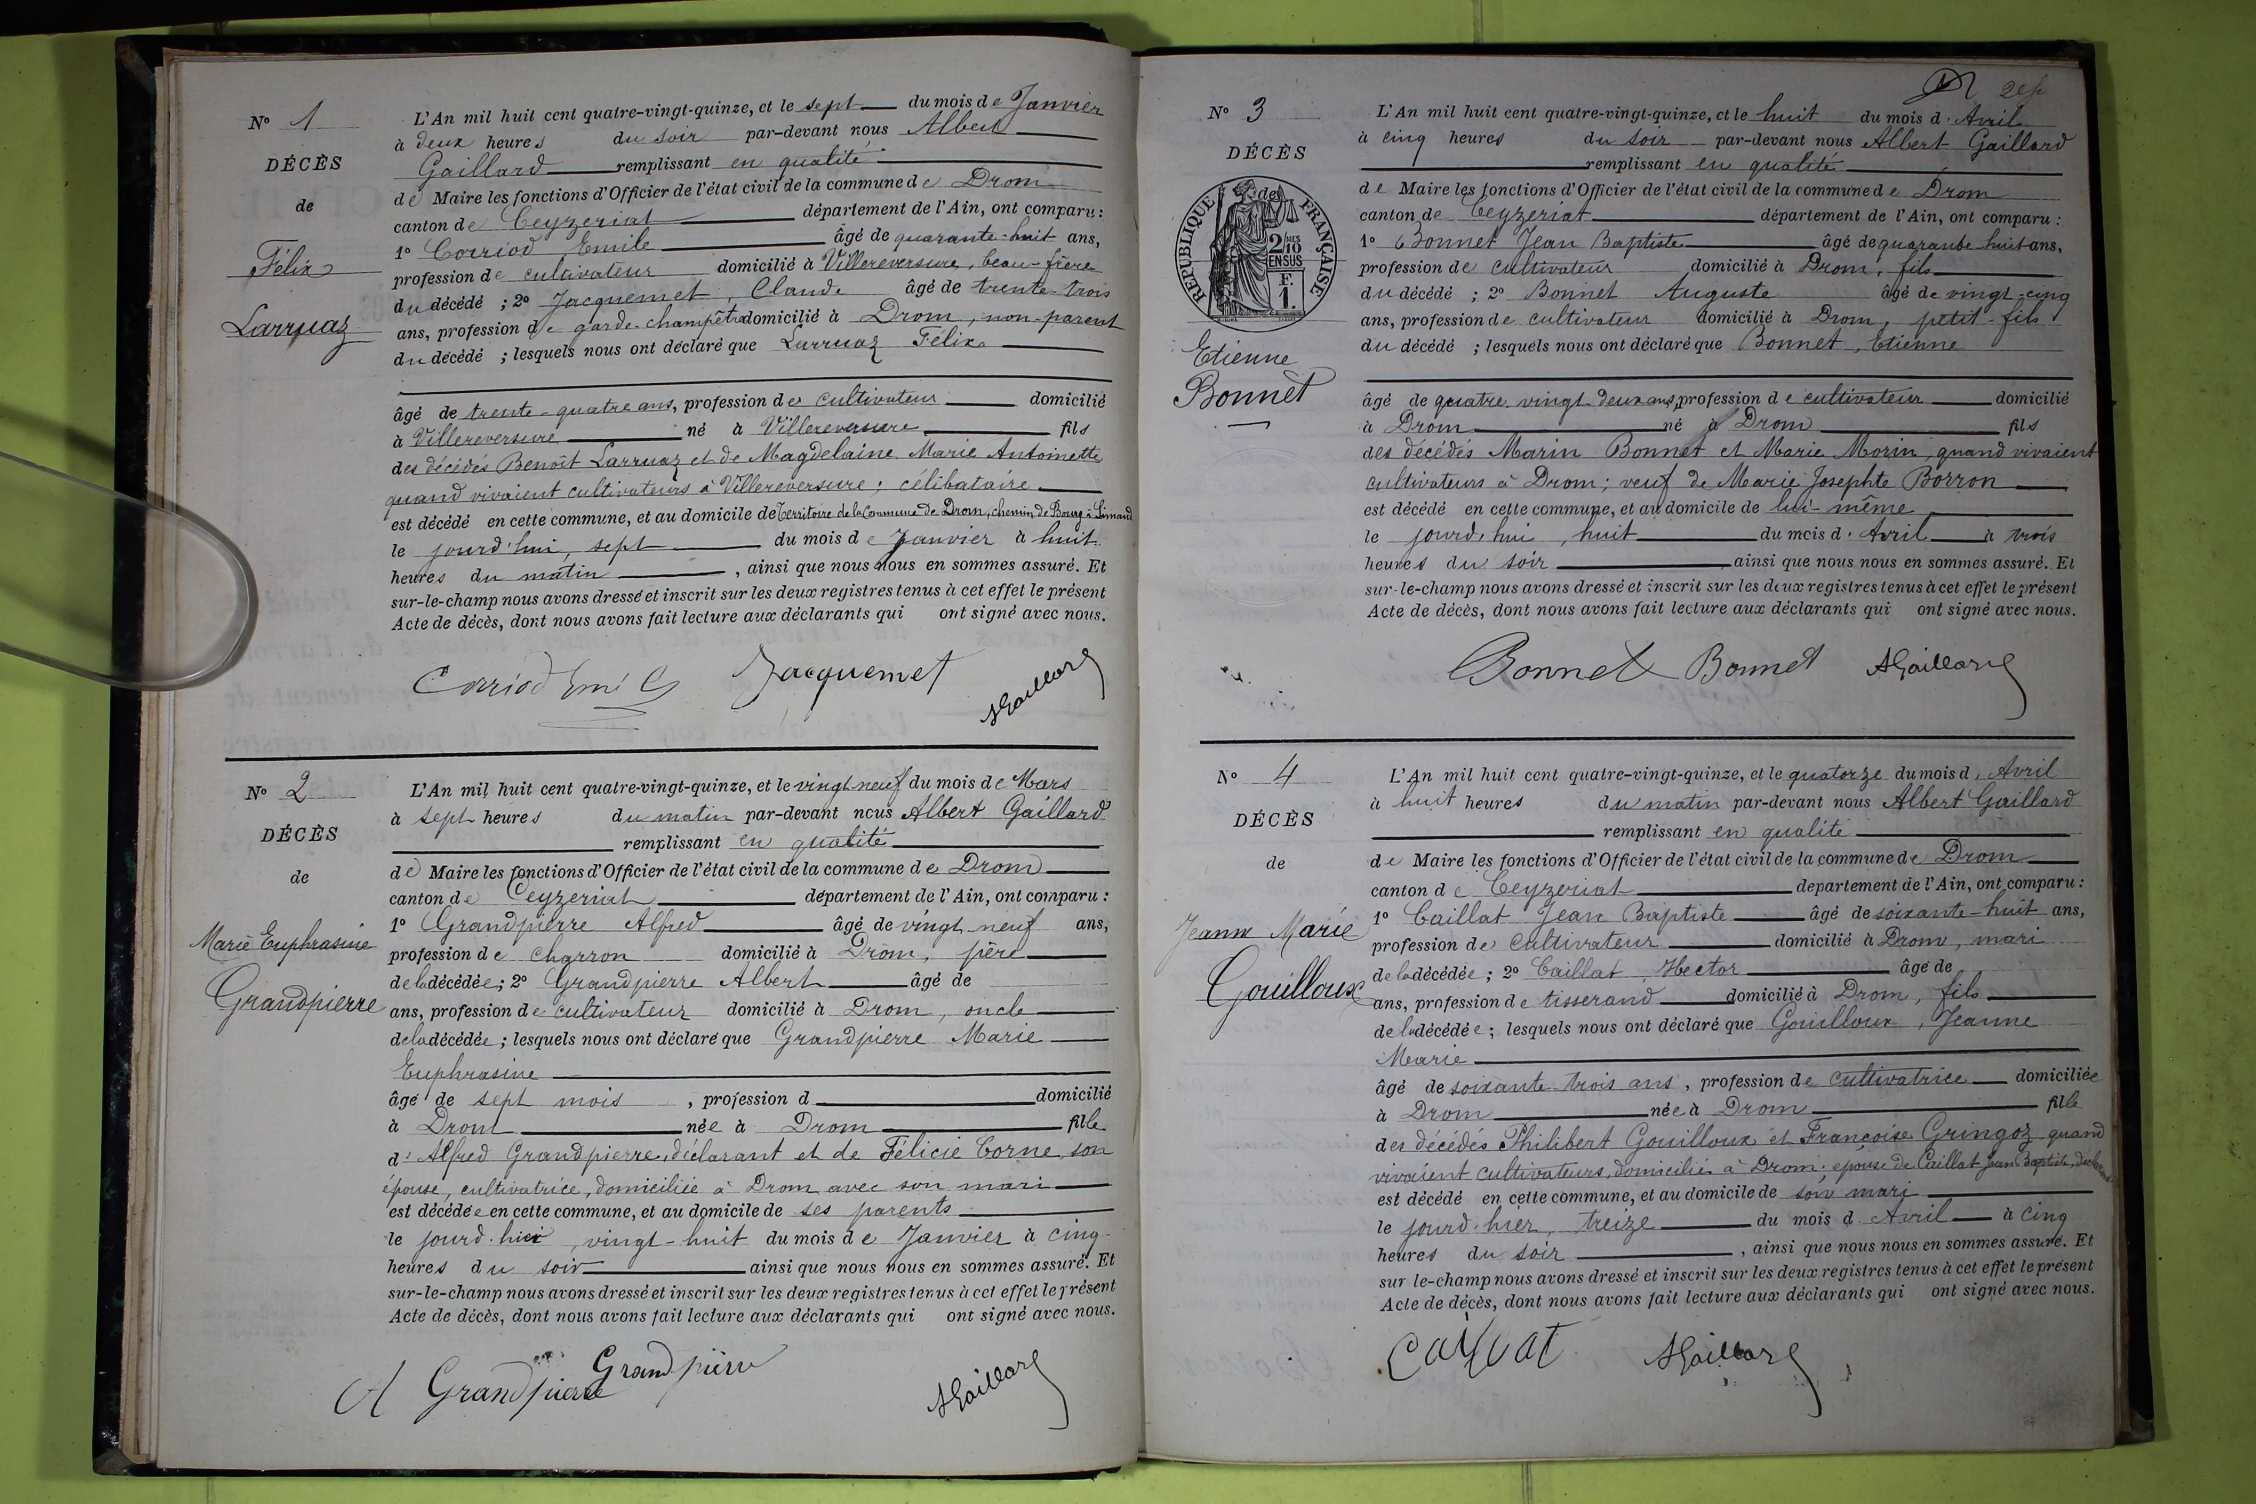 N° 1
DÉCÈS
de
Félix
Larruaz
L'An mil huit cent quatre-vingt-quinze, et le sept du mois de Janvier
à deux heures du soir par-devant nous Albert
Gaillard remplissant en qualité
de Maire les fonctions d'Officier de l'état civil de la commune de Drom
canton de Ceyzeriat département de l'Ain, ont comparu :
1° Corriod Emile âgé de quarante-huit ans,
profession de cultivateur domicilié à Villereversure, beau-frère
du décédé ; 2° Jacquemet, Claude âgé de trente-trois
ans, profession de garde-champêtre domicilié à Drom, non-parent
du décédé ; lesquels nous ont déclaré que Larruaz Félix
âgé de trente-quatre ans, profession de cultivateur domicilié
à Villereversure né à Villereversure fils
des décédés Benoît Larruaz et de Magdelaine Marie Antoinette
quand vivaient cultivateurs à Villereversure ; célibataire
est décédé en cette commune, et au domicile de Territoire de la Commune de Drom, chemin de Bourg à Simand
le jourd'hui, sept du mois de Janvier à huit
heures du matin , ainsi que nous nous en sommes assuré. Et
sur-le-champ nous avons dressé et inscrit sur les deux registres tenus à cet effet le présent
Acte de décès, dont nous avons fait lecture aux déclarants qui ont signé avec nous.
Corriod Emile Jacquemet AGaillard
N° 2
DÉCÈS
de
Marie Euphrasine
Grandpierre
L'An mil huit cent quatre-vingt-quinze, et le vingt neuf du mois de Mars
à sept heures du matin par-devant nous Albert Gaillard
remplissant en qualité
de Maire les fonctions d'Officier de l'état civil de la commune de Drom
canton de Ceyzeriat département de l'Ain, ont comparu :
1° Grandpierre Alfred âgé de vingt neuf ans,
profession de charron domicilié à Drom, père
de la décédée ; 2° Grandpierre Albert âgé de
ans, profession de cultivateur domicilié à Drom, oncle
de la décédée ; lesquels nous ont déclaré que Grandpierre Marie
Euphrasine
âgé de sept mois , profession d domicilié
à Drom née à Drom fille
d'Alfred Grandpierre, déclarant et de Félicie Corne, son
épouse, cultivatrice, domiciliée à Drom avec son mari
est décédée en cette commune, et au domicile de ses parents
le jourd'hier, vingt-huit du mois de Janvier à cinq
heures du soir ainsi que nous nous en sommes assuré. Et
sur-le-champ nous avons dressé et inscrit sur les deux registres tenus à cet effet le présent
Acte de décès, dont nous avons fait lecture aux déclarants qui ont signé avec nous.
A Grandpierre Grandpierre AGaillard
N° 3
DÉCÈS
RÉPUBLIQUE FRANÇAISE
de
2/10
EN SUS
F.
1.
Etienne
Bonnet
L'An mil huit cent quatre-vingt-quinze, et le huit du mois d'Avril
à cinq heures du soir par-devant nous Albert Gaillard
remplissant en qualité
de Maire les fonctions d'Officier de l'état civil de la commune de Drom
canton de Ceyzeriat département de l'Ain, ont comparu :
1° Bonnet Jean Baptiste âgé de quarante huit ans,
profession de cultivateur domicilié à Drom, fils
du décédé ; 2° Bonnet Auguste âgé de vingt-cinq
ans, profession de cultivateur domicilié à Drom, petit-fils
du décédé ; lesquels nous ont déclaré que Bonnet, Etienne
âgé de quatre-vingt-deux ans, profession de cultivateur domicilié
à Drom né à Drom fils
des décédés Marin Bonnet et Marie Morin, quand vivaient
cultivateurs à Drom ; veuf de Marie Josephte Borron
est décédé en cette commune, et au domicile de lui-même
le jourd'hui, huit du mois d'Avril à trois
heures du soir ainsi que nous nous en sommes assuré. Et
sur-le-champ nous avons dressé et inscrit sur les deux registres tenus à cet effet le présent
Acte de décès, dont nous avons fait lecture aux déclarants qui ont signé avec nous.
Bonnet Bonnet AGaillard
N° 4
DÉCÈS
de
Jeanne Marie
Gouilloux
L'An mil huit cent quatre-vingt-quinze, et le quatorze du mois d'Avril
à huit heures du matin par-devant nous Albert Gaillard
remplissant en qualité
de Maire les fonctions d'Officier de l'état civil de la commune de Drom
canton de Ceyzeriat département de l'Ain, ont comparu :
1° Caillat Jean Baptiste âgé de soixante-huit ans,
profession de cultivateur domicilié à Drom, mari
de la décédée ; 2° Caillat, Hector âgé de
ans, profession de tisserand domicilié à Drom, fils
de la décédée ; lesquels nous ont déclaré que Gouilloux, Jeanne
Marie
âgé de soixante-trois ans, profession de cultivatrice domiciliée
à Drom née à Drom fille
des décédés Philibert Gouilloux et Françoise Gringoz quand
vivaient cultivateurs, domiciliés à Drom ; épouse de Caillat Jean Baptiste, déclarant
est décédé en cette commune, et au domicile de son mari
le jourd'hier, treize du mois d'Avril à cinq
heures du soir , ainsi que nous nous en sommes assuré. Et
sur le-champ nous avons dressé et inscrit sur les deux registres tenus à cet effet le présent
Acte de décès, dont nous avons fait lecture aux déclarants qui ont signé avec nous.
Caillat AGaillard